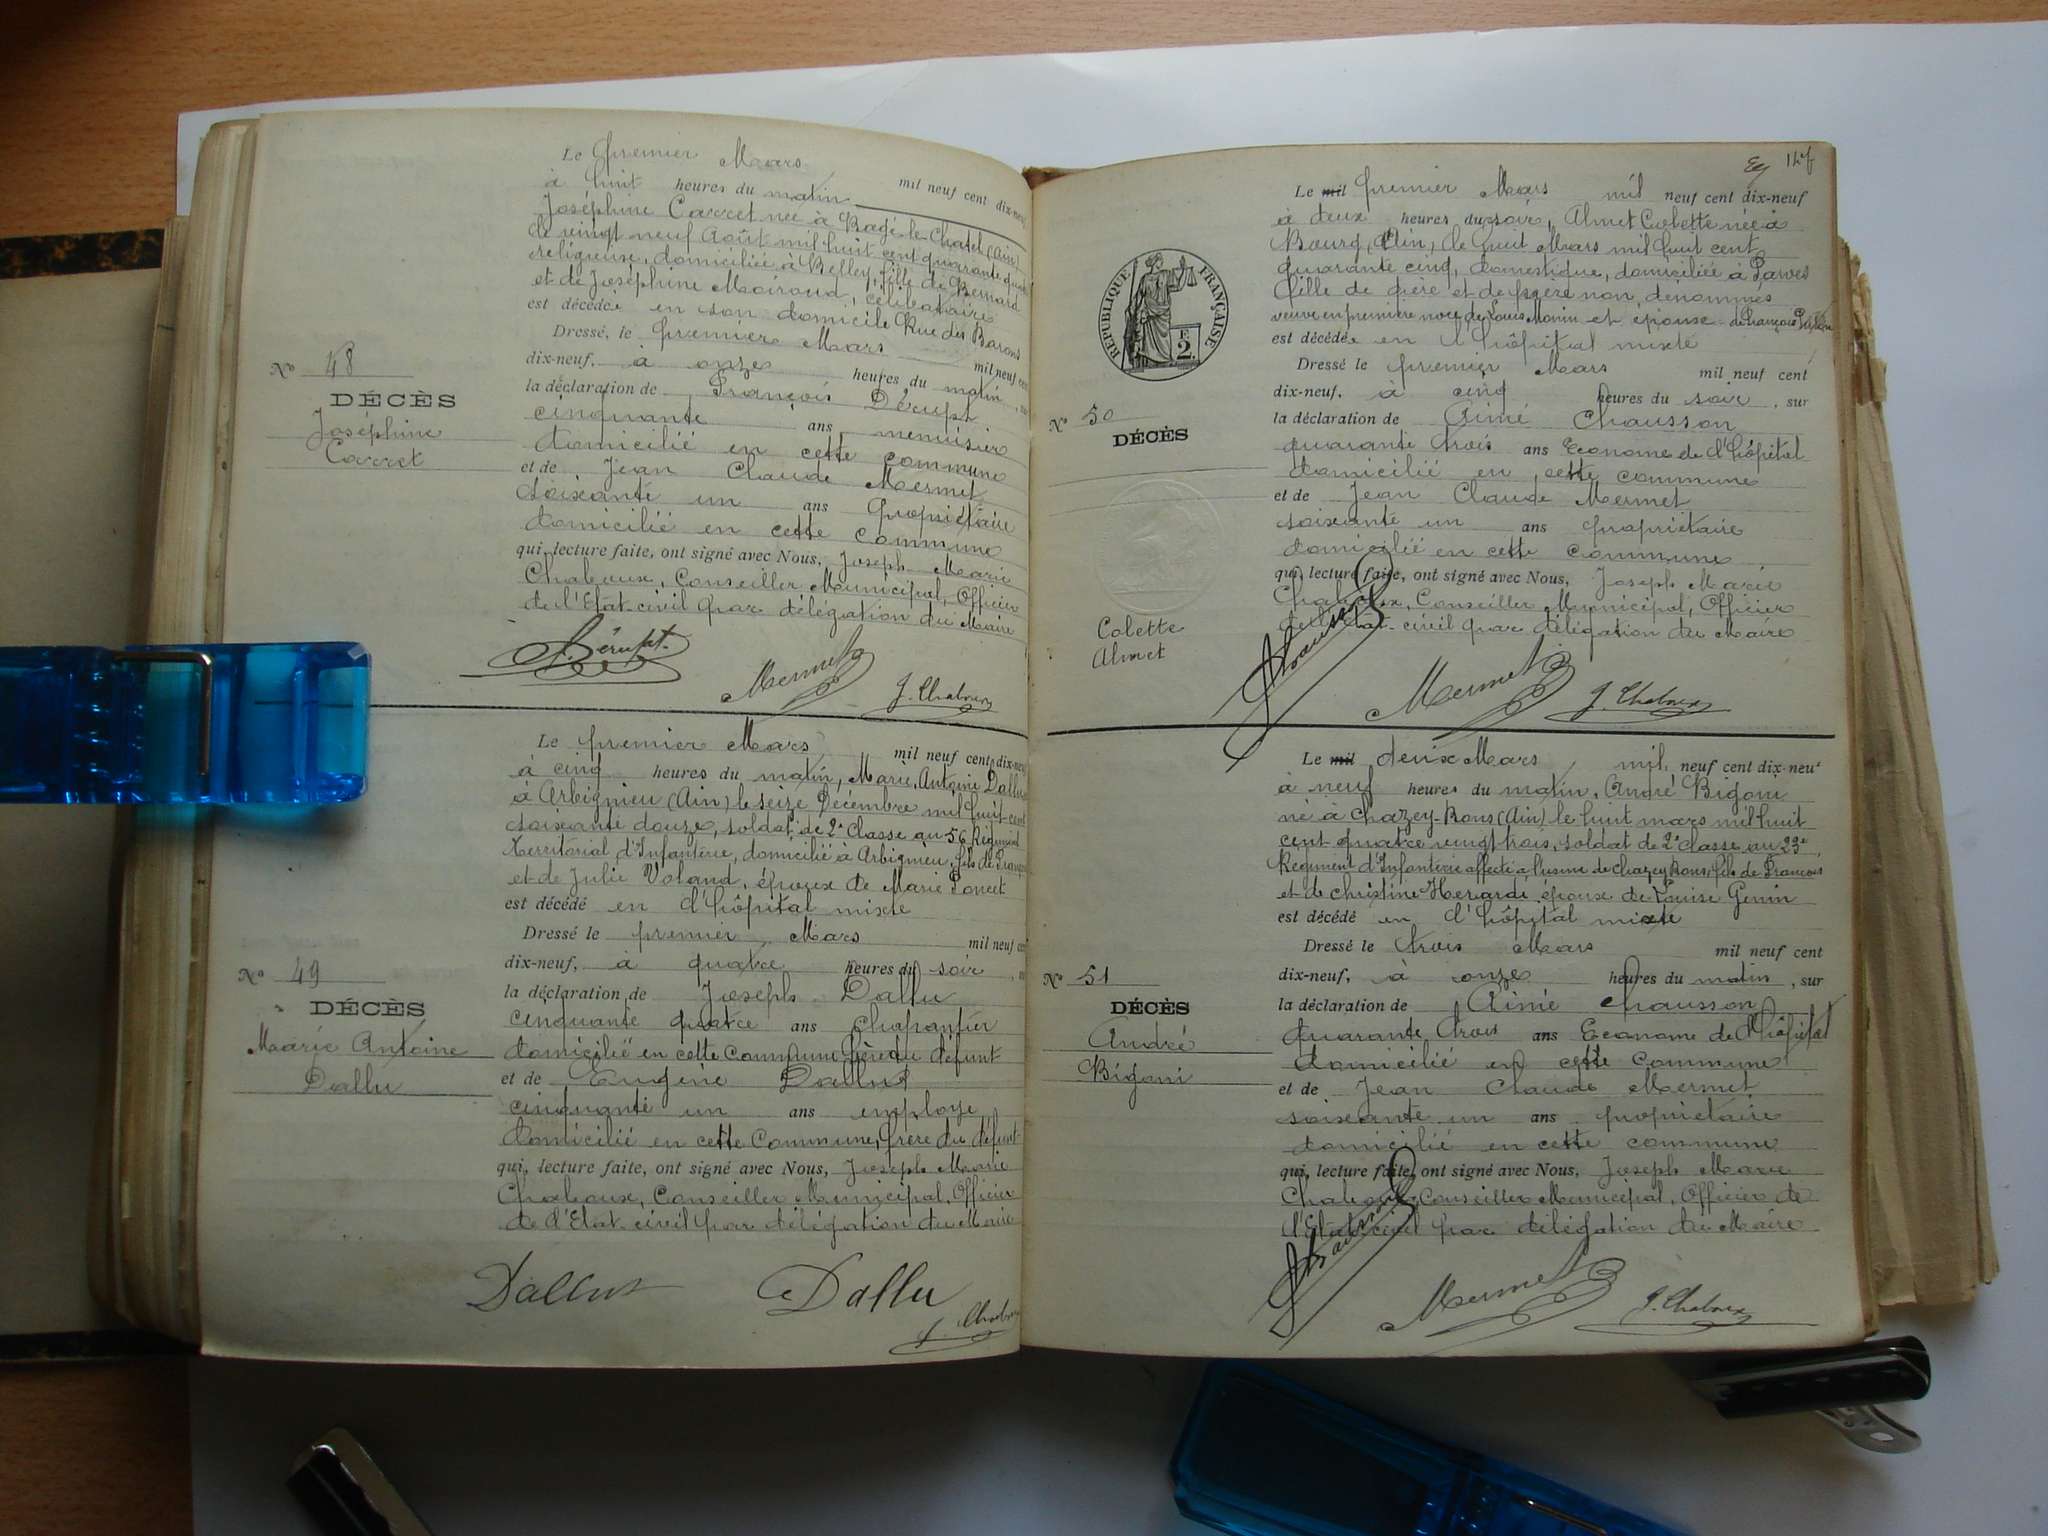 Le premier Mars mil neuf cent dix-neuf
à huit heures du matin
Joséphine Carret née à Bagé le Chatel (Ain)
le vingt neuf Août mil huit cent quarante
religieuse, domiciliée à Belley, fille de Bernard
et de Joséphine Moiroud, célibataire
est décédée en son domicile Rue des Barons
Dressé, le premier Mars mil neuf cent
dix-neuf, à onze heures du matin
la déclaration de François Dérupt
cinquante ans menuisier
domicilié en cette commune
et de Jean Claude Mermet
soixante un ans propriétaire
domicilié en cette commune
qui, lecture faite, ont signé avec Nous, Joseph Marie
Chaboux, Conseiller Municipal, Officier
de l'Etat-civil par délégation du Maire
N° 48
DÉCÈS
Joséphine
Carret
Dérupt
Mermet
J. Chaboux
Le premier Mars mil neuf cent dix-neuf
à cinq heures du matin, Marie Antoine Dallu
à Arbignieu (Ain) le seize Décembre mil huit cent
soixante douze, soldat de 2e Classe au 56 Régiment
Territorial d'Infanterie, domicilié à Arbignieu, fils de
et de Julie Voland, époux de Marie Poncet
est décédé en l'hôpital mixte
Dressé le premier Mars mil neuf cent
dix-neuf, à quatre heures du soir
la déclaration de Joseph Dallu
cinquante quatre ans charpentier
domicilié en cette Commune frère du défunt
et de Eugène Dallu
cinquante un ans employé
domicilié en cette Commune, frère du défunt
qui, lecture faite, ont signé avec Nous, Joseph Marie
Chaboux, Conseiller Municipal, Officier
de l'Etat-civil par délégation du Maire
N° 49
DÉCÈS
Marie Antoine
Dallu
Dallu
Dallu
J. Chaboux
Le mil premier Mars mil neuf cent dix-neuf
à deux heures du soir, Almet Colette née à
Bourg (Ain) le huit Mars mil huit cent
quarante cinq, domestique, domiciliée à Parves
fille de père et de mère non dénommés
veuve en première noce de Louis Monin et épouse de François
est décédée en l'hôpital mixte
Dressé le premier Mars mil neuf cent
dix-neuf, à cinq heures du soir, sur
la déclaration de Aimé Chausson
quarante trois ans Econome de l'hôpital
domicilié en cette commune
et de Jean Claude Mermet
soixante un ans propriétaire
domicilié en cette commune
qui, lecture faite, ont signé avec Nous, Joseph Marie
Chaboux, Conseiller Municipal, Officier
de l'Etat-civil par délégation du Maire
RÉPUBLIQUE FRANÇAISE
2
N° 50
DÉCÈS
Colette
Almet
Chausson
Mermet
J. Chaboux
Le mil deux Mars mil neuf cent dix-neuf
à neuf heures du matin, André Bigoni
né à Chazey-Bons (Ain) le huit mars mil huit
cent quatre vingt trois, soldat de 2e Classe au 23e
Régiment d'Infanterie affecté à l'usine de Chazey Bons, fils de François
et de Christine époux de Louise Genin
est décédé en l'hôpital mixte
Dressé le trois Mars mil neuf cent
dix-neuf, à onze heures du matin, sur
la déclaration de Aimé Chausson
quarante trois ans Econome de l'hôpital
domicilié en cette Commune
et de Jean Claude Mermet
soixante un ans propriétaire
domicilié en cette commune
qui, lecture faite, ont signé avec Nous, Joseph Marie
Chaboux, Conseiller Municipal, Officier de
l'Etat-civil par délégation du Maire
N° 51
DÉCÈS
André
Bigoni
Chausson
Mermet
J. Chaboux